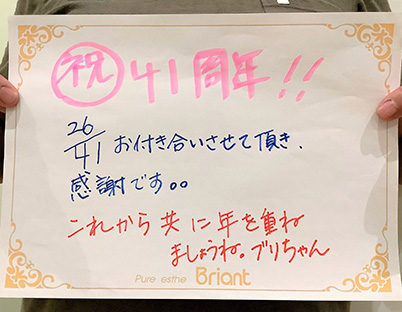 祝 41周年!!
26/41 お付き合いさせて頂き、
感謝です。。
これから共に年を重ね
ましょうね。ブリちゃん
Pure esthe Briant